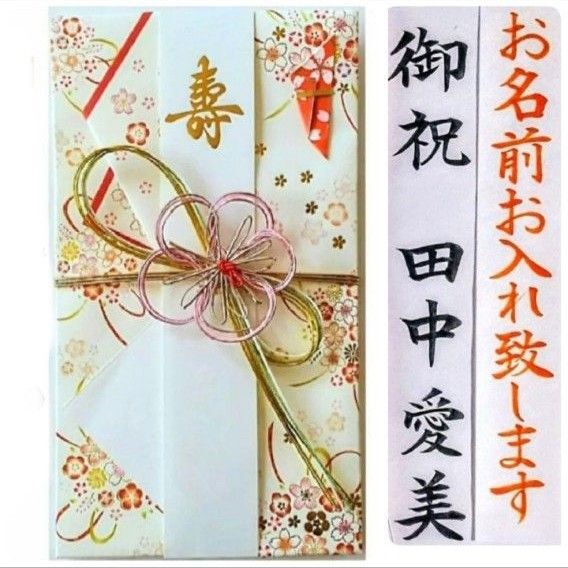 寿
お名前お入れ致します
御祝 田中愛美